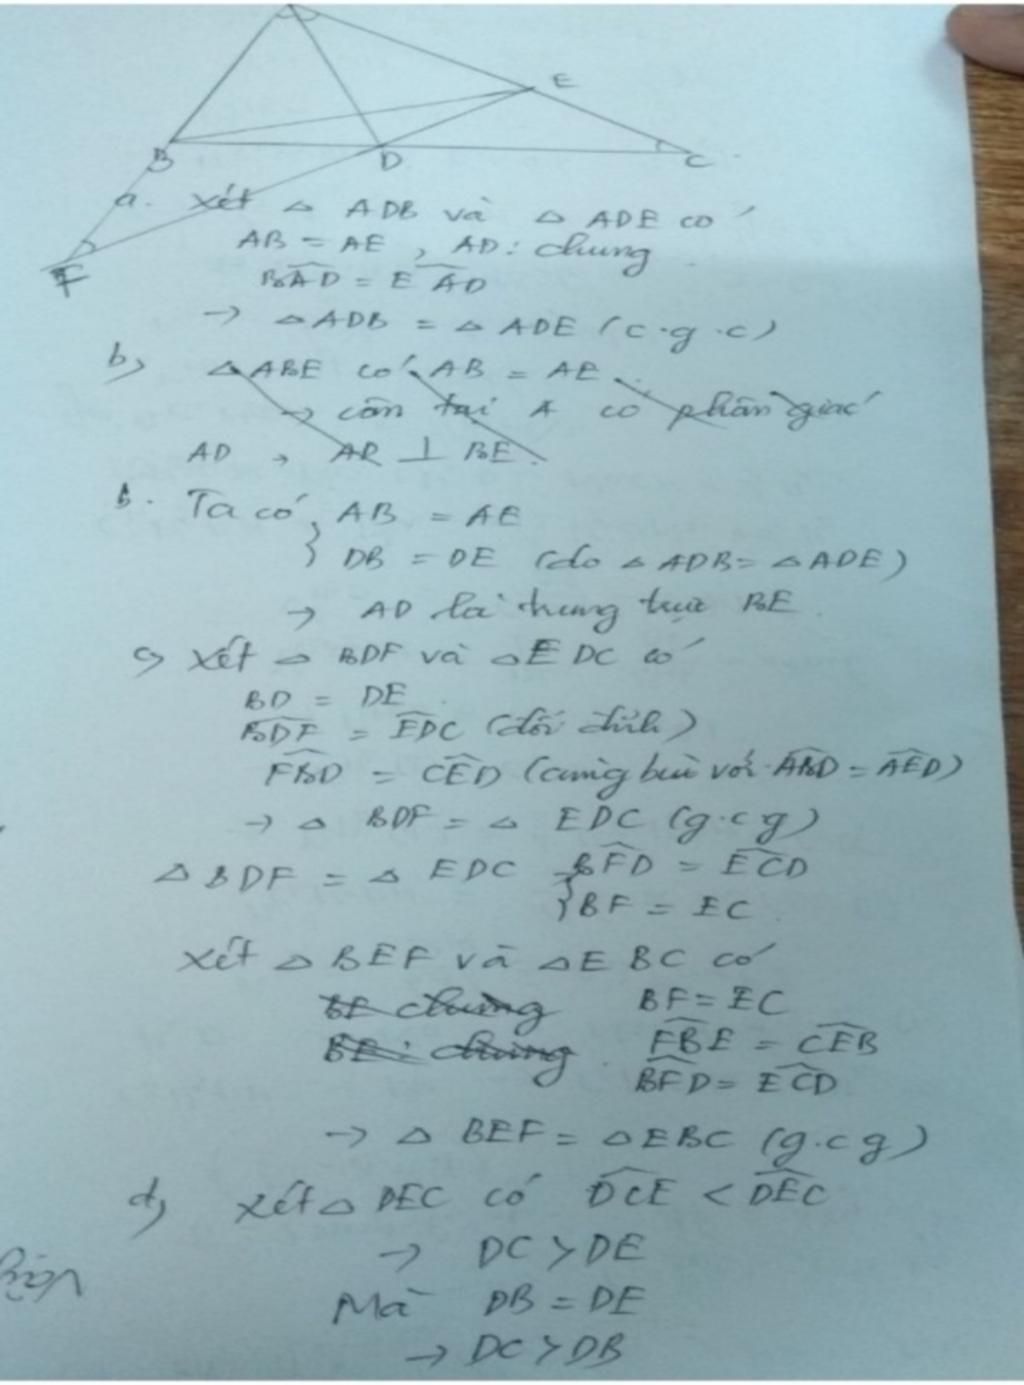 E
B
D
C
a. Xét △ ADB và △ ADE có
AB = AE , AD : chung
F
BAD = EAD
→ △ADB = △ ADE (c.g.c)
b) △ABE có AB = AE
→ cân tại A có phân giác
AD → AD ⊥ BE.
b. Ta có AB = AE
DB = DE (do △ ADB = △ ADE)
→ AD là trung trực BE.
c) Xét △ BDF và △EDC có
BD = DE
BDF = EDC (đối đỉnh)
FBD = CED (cùng bù với ABD = AED)
→ △ BDF = △ EDC (g.c.g)
△BDF = △ EDC BFD = ECD
BF = EC
Xét △BEF và △EBC có
BE chung BF = EC
BE : chung FBE = CEB
BFD = ECD
→ △ BEF = △EBC (g.c.g)
d) Xét △ DEC có DCE < DEC
→ DC > DE
Mà DB = DE
→ DC > DB